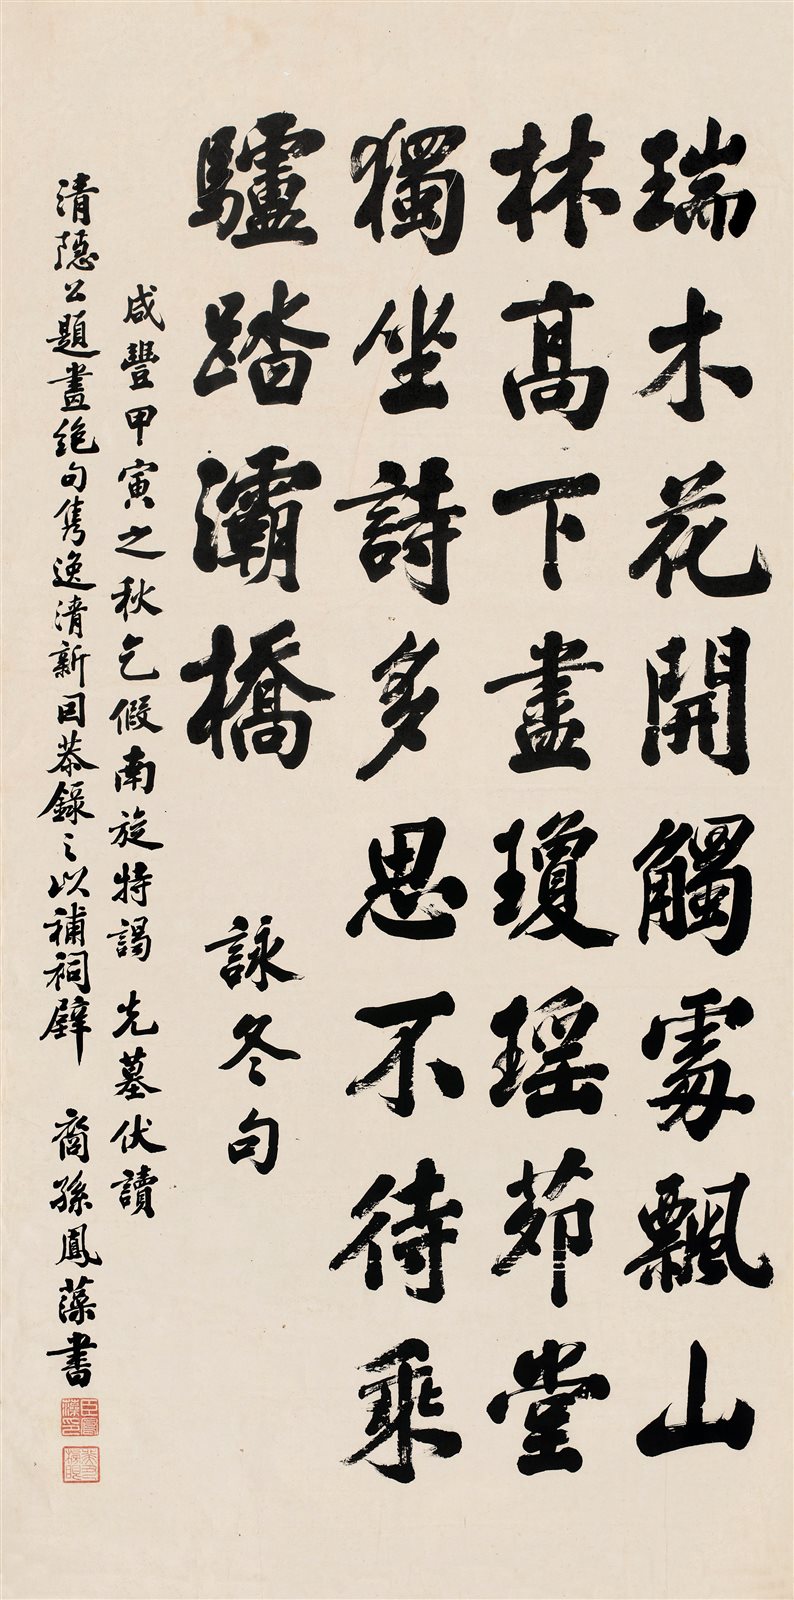 瑞木花開觸處飄山
林高下盡瓊瑤茆堂
獨坐詩多思不待乘
驢踏灞橋 詠冬句
咸豐甲寅之秋乞假南旋特謁 先墓伏讀
清隱公題畫絕句雋逸清新因恭錄之以補祠壁 裔孫鳳藻書
臣鳳藻印